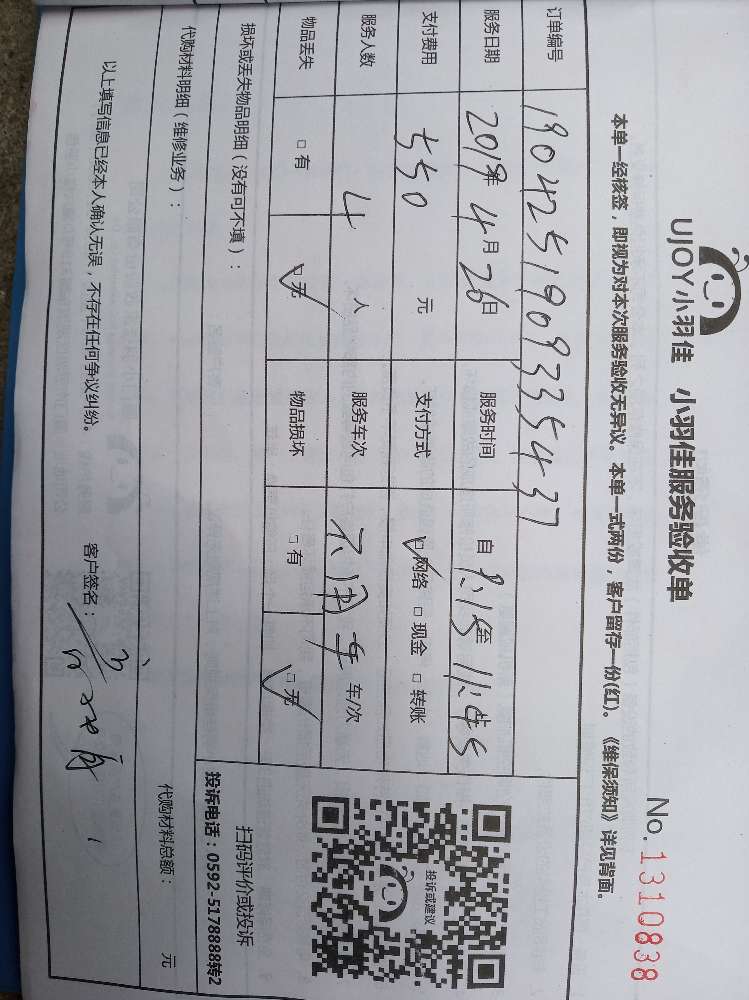 UJOY小羽佳 小羽佳服务验收单
No. 1310838
本单一经核签，即视为对本次服务验收无异议。本单一式两份，客户留存一份(红)。《维保须知》详见背面。
订单编号 1904251909335437
服务日期 2019年 4 月 26日 服务时间 自 9:15至 11:45
支付费用 550 元 支付方式 ☑网络 □现金 □转账
服务人数 4 人 服务车次 不用车 车/次
物品丢失 □有 ☑无 物品损坏 □有 ☑无
损坏或丢失物品明细（没有可不填）：
投诉或建议
扫码评价或投诉
投诉电话：0592-5178888转2
代购材料明细（维修业务）：
代购材料总额： 元
以上填写信息已经本人确认无误，不存在任何争议纠纷。 客户签名：